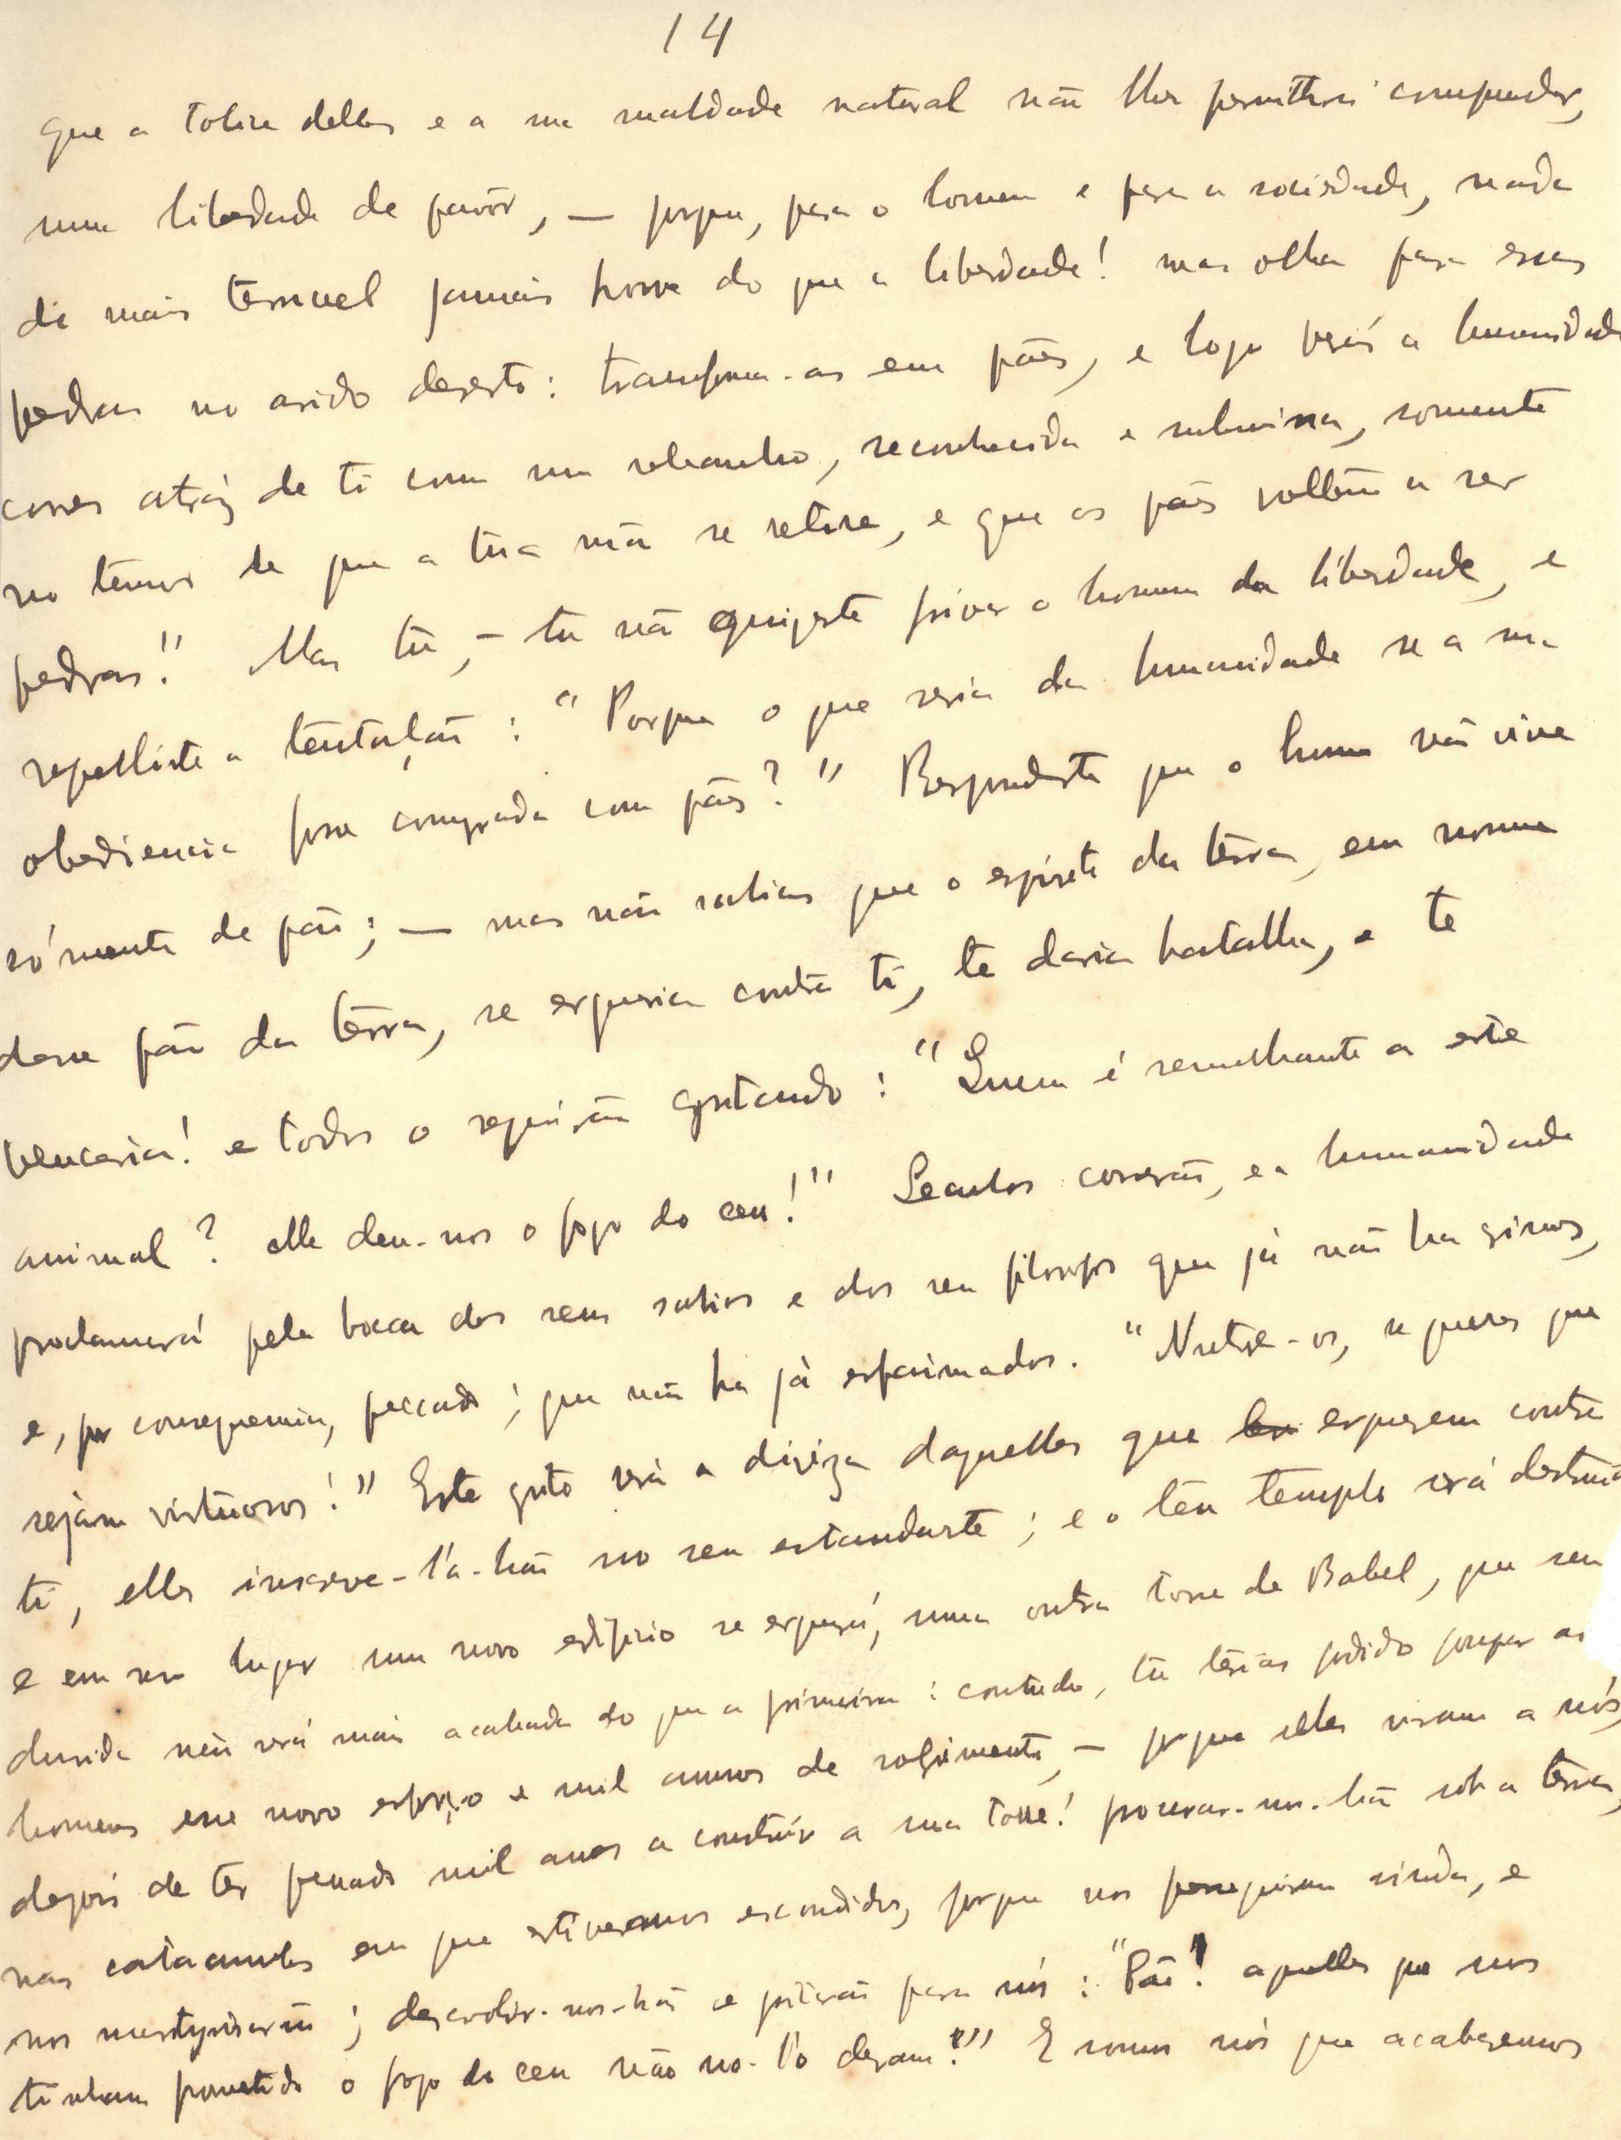 14
que a tolice delles e a sua maldade natural não lhes permittirá comprehender,
uma liberdade de pavôr, — porque, para o homem e para a sociedade, nada
de mais terrivel jamais houve do que a liberdade! mas olha para essas
pedras no arido deserto: transforma-as em pães, e logo verás a humanidade
correr atráz de ti como um rebanho, reconhecida e submissa, somente
no temor de que a tua mão se retire, e que os pães voltem a ser
pedras!" Mas tu, — tu não quizeste privar o homem da liberdade, e
repelliste a tentação: "Porque o que seria da humanidade se a sua
obediencia fosse comprada com pães?" Respondeste que o homem não vive
sómente de pão; — mas não sabias que o espirito da terra, em nome
desse pão da terra, se ergueria contra ti, te daria batalha, e te
venceria! e todos o seguirão gritando: "Quem é semelhante a este
animal? elle deu-nos o fogo do ceu!" Seculos correrão, e a humanidade
proclamará pela bocca dos seus sabios e dos seus filosofos que já não ha crimes,
e, por consequencia, peccado; que não ha já esfaimados. "Nutre-os, se queres que
sejam virtuosos!" Este grito será a diviza daquelles que se erguerem contra
ti, elles inscreve-l'a-hão no seu estandarte; e o teu templo será destruido
e em seu lugar um novo edificio se erguerá, uma outra torre de Babel, que sem
duvida não será mais acabada do que a primeira: contudo, tu terias podido poupar aos
homens esse novo esforço e mil annos de soffrimento, — porque elles viram a nós,
depois de ter penado mil anos a construir a sua torre! procurar-nos-hão sob a terra,
nas catacumbas em que estivermos escondidos, porque nos perseguiram ainda, e
nos martyrisarão; descobrir-nos-hão e gritarão para nós: "Pão! aquelles que nos
tinham promettido o fogo do ceu não no-l'o deram!" E somos nós que acabaremos